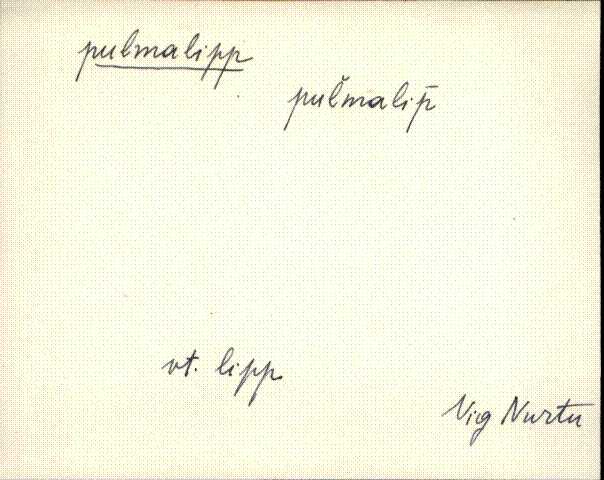 pulmalipp
pul̆malip̄
vt. lipp
Vig Nurtu